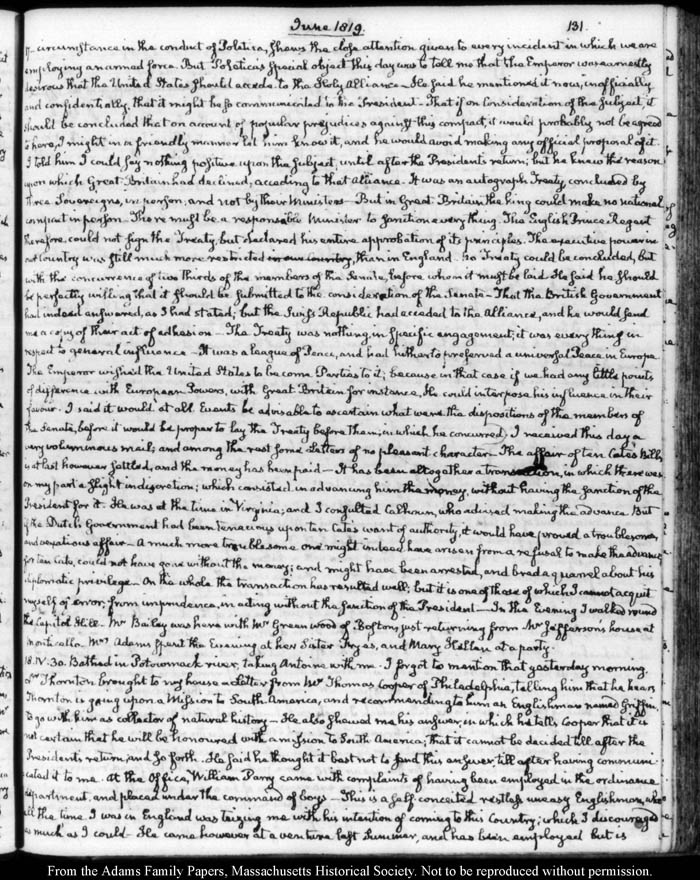 June 1819.
131.
circumstance in the conduct of Politica, shews the close attention given to every incident in which we are
employing an armed force. But Poletica's special object this day was to tell me that the Emperor was earnestly
desirous that the United States should accede to the Holy Alliance— He said he mentioned it now, unofficially
and confidentially, that it might be so communicated to the President— That if on consideration of the subject, it
should be concluded that on account of popular prejudices against this compact, it would probably not be agreed
to here, I might in a friendly manner let him know it, and he would avoid making any official proposal of it.
I told him I could say nothing positive upon the subject, until after the President's return; but he knew the reason
upon which Great-Britain had declined, acceding to that Alliance. It was an autograph Treaty, concluded by
three Sovereigns, in person, and not by their Ministers— But in Great-Britain the King could make no national
compact in person. There must be a responsible Minister to sanction every thing. The English Prince Regent
therefore could not sign the Treaty, but declared his entire approbation of its principles. The executive power in
our Country was still much more restricted in our Country, than in England. No Treaty could be concluded, but
with the concurrence of two thirds of the members of the Senate, before whom it must be laid. He said he should
be perfectly willing that it should be submitted to the consideration of the Senate— That the British Government
had indeed answered, as I had stated; but the Swiss Republic had acceded to the Alliance, and he would send
me a copy of their act of adhesion— The Treaty was nothing in specific engagement; it was every thing in
respect to general influence— It was a league of Peace, and had hitherto preserved a universal Peace in Europe.
The Emperor wished the United States to become Parties to it; because in that case if we had any little points
of difference with European Powers, with Great Britain for instance, He could interpose his influence in their
favour. I said it would at all Events be advisable to ascertain what were the dispositions of the members of
the Senate, before it would be proper to lay the Treaty before them; in which he concurred. I received this day a
very voluminous mail; and among the rest some Letters of no pleasant character— The affair of ten Cate's Bills
is at last however settled, and the money has been paid— It has been altogether a transaction, in which there was
on my part a slight indiscretion; which consisted in advancing him the money, without having the sanction of the
President for it. He was at the time in Virginia; and I consulted Calhoun, who advised making the advance. But
if the Dutch Government had been tenacious upon ten Cate's want of authority, it would have proved a troublesome,
and vexatious affair— A much more troublesome one might indeed have arisen from a refusal to make the advance
for ten Cate, could not have gone without the money; and might have been arrested, and bred a quarrel about his
diplomatic privilege— On the whole the transaction has resulted well; but it is one of those of which I cannot acquit
myself of error, from imprudence, in acting without the sanction of the President— In the Evening I walked round
the Capitol Hill. Mr Bailey was here with Mr Greenwood of Boston, just returning from Mr Jefferson's house at
Monticello. Mrs Adams spent the Evening at her Sister Frye's, and Mary Hellen at a party.
18. IV:30. Bathed in Potowmack river, taking Antoine with me. I forgot to mention that yesterday morning
Dr Thornton brought to my house a Letter from Mr Thomas Cooper of Philadelphia, telling him that he hears
Thornton is going upon a Mission to South-America, and recommending to him an Englishman named Griffin,
to go with him as collector of natural history— He also shewed me his answer, in which he tells Cooper that it is
not certain that he will be honoured with a mission to South America; that it cannot be decided till after the
President's return, and so forth. He said he thought it best not to send this answer till after having communi-
cated it to me. At the Office, William Parry came with complaints of having been employed in the ordinance
department, and placed under the command of boys— This is a self conceited restless uneasy Englishman, who
all the time I was in England was teizing me with his intention of coming to this Country; which I discouraged
as much as I could— He came however at a venture last Summer, and has been employed but is
From the Adams Family Papers, Massachusetts Historical Society. Not to be reproduced without permission.